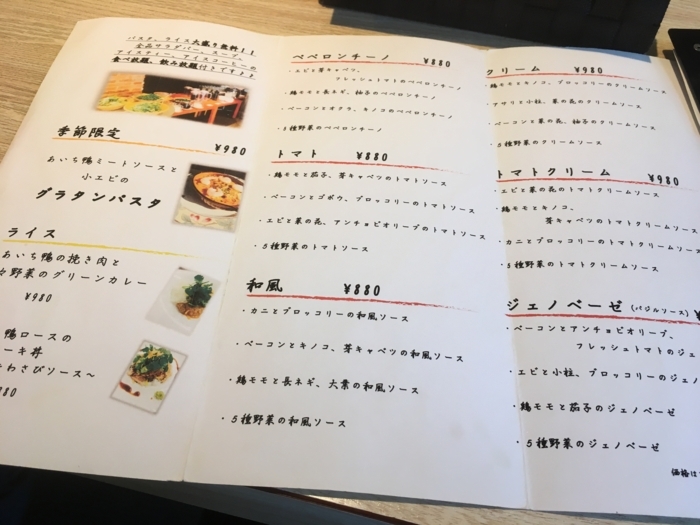 パスタ、ライス大盛り無料！！
全品サラダバー、スープ、
アイスティー、アイスコーヒーの
食べ放題、飲み放題付きです♪♪
季節限定
¥980
あいち鴨ミートソースと
小エビの
グラタンパスタ
ライス
あいち鴨の挽き肉と
野菜のグリーンカレー
¥980
鴨ロースの
ーキ丼
わさびソース～
880
ペペロンチーノ ¥880
・エビと芽キャベツ、
フレッシュトマトのペペロンチーノ
・鶏モモと長ネギ、柚子のペペロンチーノ
・ベーコンとオクラ、キノコのペペロンチーノ
・5種野菜のペペロンチーノ
トマト ¥880
・鶏モモと茄子、芽キャベツのトマトソース
・ベーコンとゴボウ、ブロッコリーのトマトソース
・エビと菜の花、アンチョビオリーブのトマトソース
・5種野菜のトマトソース
和風 ¥880
・カニとブロッコリーの和風ソース
・ベーコンとキノコ、芽キャベツの和風ソース
・鶏モモと長ネギ、大葉の和風ソース
・5種野菜の和風ソース
クリーム ¥980
鶏モモとキノコ、ブロッコリーのクリームソース
・アサリと小柱、菜の花のクリームソース
・ベーコンと菜の花、柚子のクリームソース
・5種野菜のクリームソース
トマトクリーム ¥980
・エビと菜の花のトマトクリームソース
・鶏モモとキノコ、
芽キャベツのトマトクリームソース
・カニとブロッコリーのトマトクリームソース
・5種野菜のトマトクリームソース
ジェノベーゼ (バジルソース) ¥
・ベーコンとアンチョビオリーブ、
フレッシュトマトのジェ
・エビと小柱、ブロッコリーのジェノ
・鶏モモと茄子のジェノベーゼ
・5種野菜のジェノベーゼ
価格は